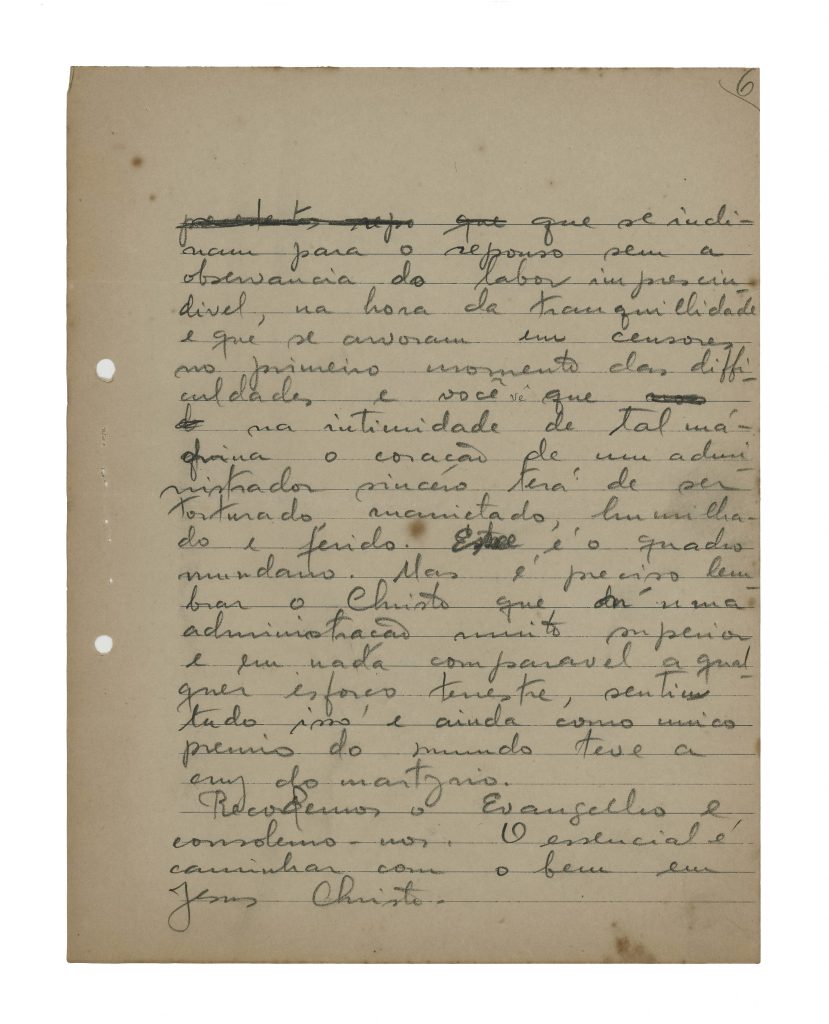 6
que que se incli-
nam para o repouso sem a
observancia do labor imprescin-
divel, na hora da tranquillidade
e que se arvoram em censores
no primeiro momento das diffi-
culdades e você vê que
na intimidade de tal má-
quina o coração de um admi-
nistrador sincéro terá de ser
torturado, manietado, humilha-
do e ferido. Este é o quadro
mundano. Mas é preciso lem-
brar o Christo que, n'uma
administração muito superior
e em nada comparavel a qual-
quer esforço terrestre, sentiu
tudo isso e ainda como unico
premio do mundo teve a
cruz do martyrio.
Recordemos o Evangelho e
consolemo-nos. O essencial é
caminhar com o bem em
Jesus Christo.